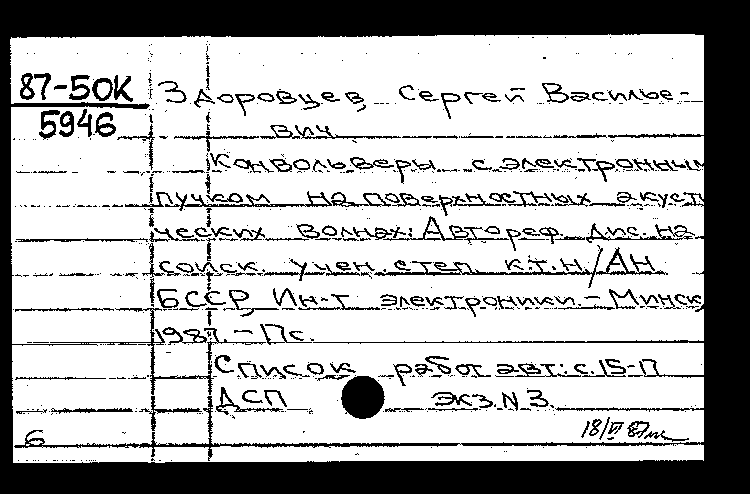 87-5ОК Здоровцев Сергей Василье-
5946 вич.
Конвольверы с электронным
пучком на поверхностных акусти
ческих волнах: Автореф. дис. на
соиск. учен. степ. к.т.н. / АН
БССР, Ин-т электроники. - Минск,
1987. - 17с.
Список работ авт.: с. 15-17
ДСП ЭКЗ. N 3
6 18/VI 87